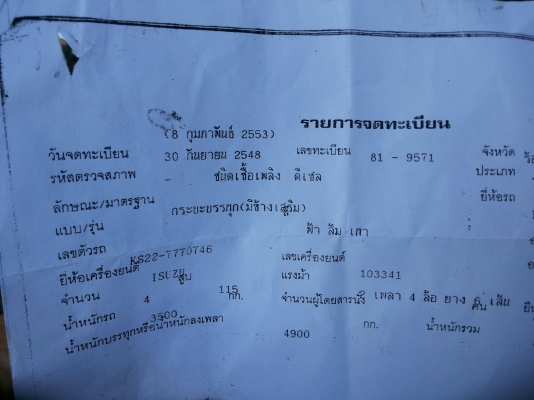 รายการจดทะเบียน
(8 กุมภาพันธ์ 2553)
วันจดทะเบียน 30 กันยายน 2548 เลขทะเบียน 81 - 9571 จังหวัด
รหัสตรวจสภาพ - ชนิดเชื้อเพลิง ดีเซล ประเภท
ลักษณะ/มาตรฐาน กระบะบรรทุก(มีข้างเสริม) ยี่ห้อรถ
แบบ/รุ่น ฟ้า ส้ม เทา
เลขตัวรถ KS22-7770746 เลขเครื่องยนต์
ยี่ห้อเครื่องยนต์ ISUZU แรงม้า 103341
จำนวน 4 สูบ 115 จำนวนผู้โดยสารนั่ง เพลา 4 ล้อ ยาง 6 เส้น
น้ำหนักรถ 3500 กก. คน
น้ำหนักบรรทุกหรือน้ำหนักลงเพลา 4900 กก. น้ำหนักรวม